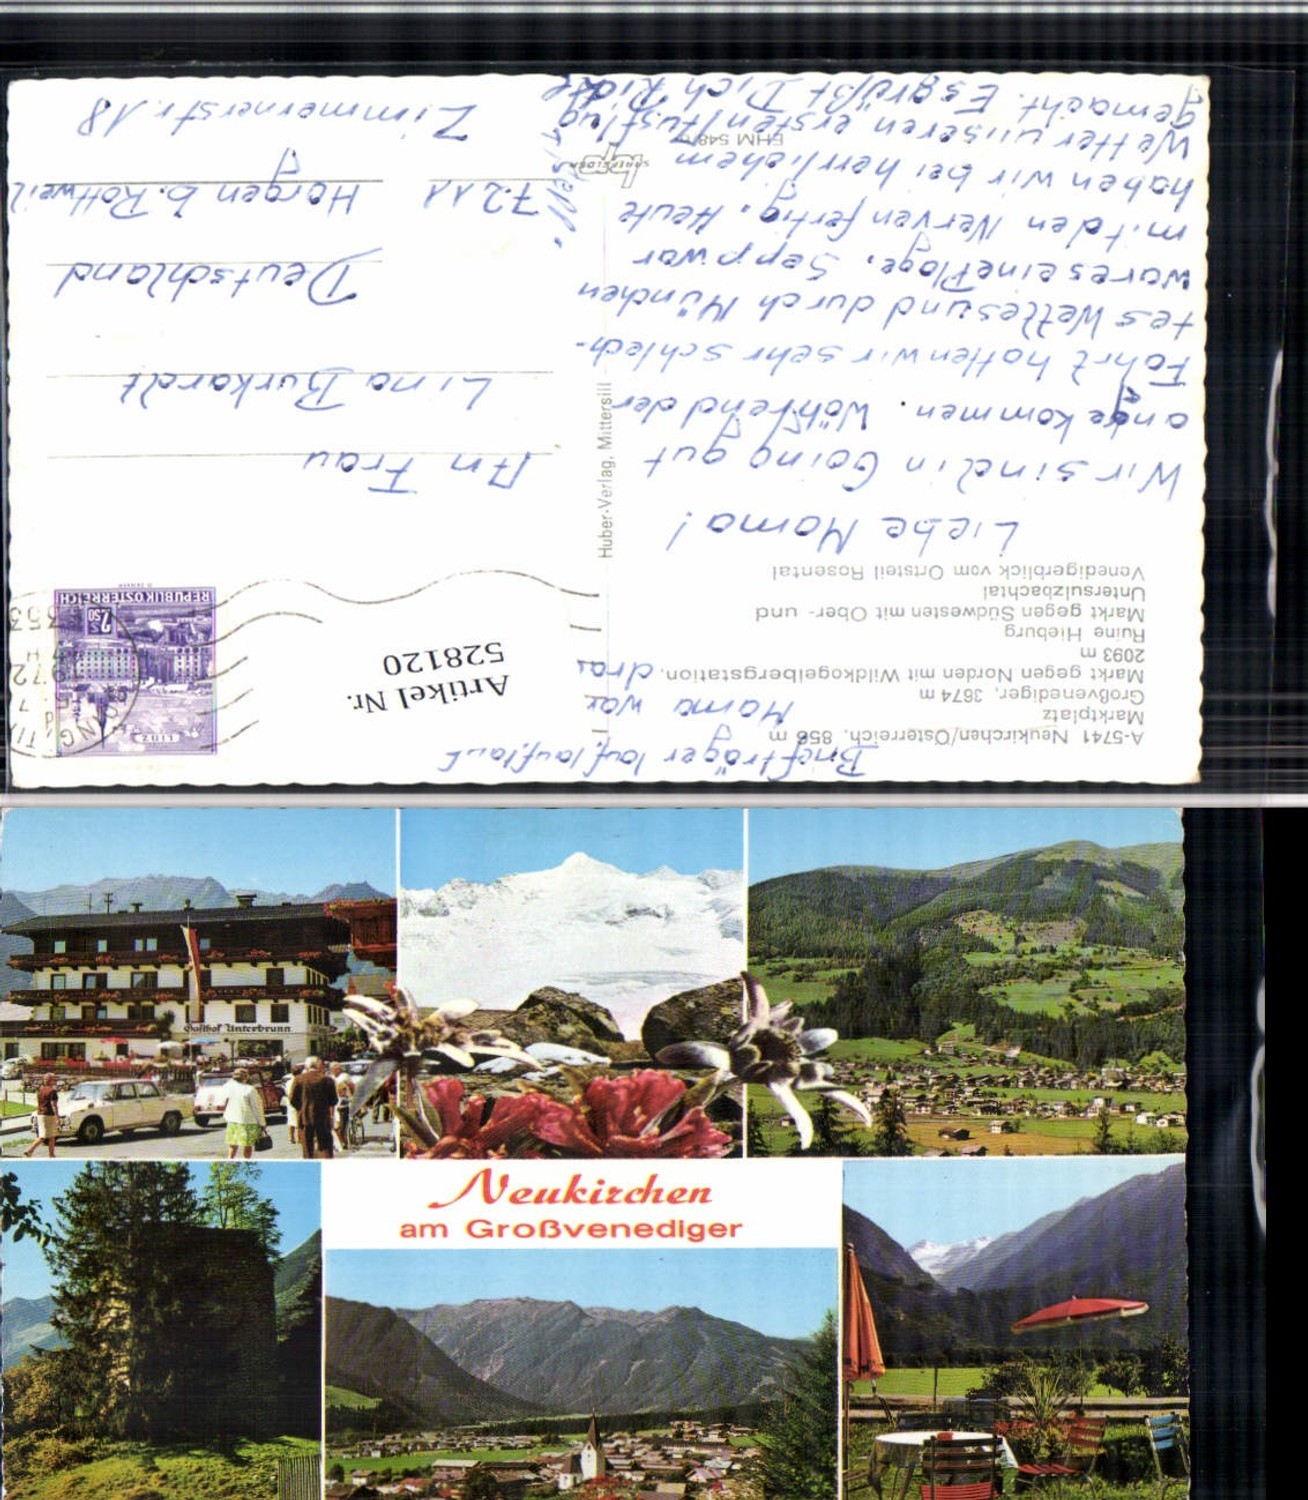 A-5741 Neukirchen/Österreich, 856 m
Marktplatz
Großvenediger, 3674 m
Markt gegen Norden mit Wildkogelbergstation,
2093 m
Ruine Hieburg
Markt gegen Südwesten mit Ober- und
Untersulzbachtal
Venedigerblick vom Ortsteil Rosental
Liebe Mama!
Wir sind in Going gut
angekommen. Während der
Fahrt hatten wir sehr schlech-
tes Wetter und durch München
war es eine Plage. Sepp war
mit den Nerven fertig. Heute
haben wir bei herrlichem
Wetter unseren ersten Ausflug
gemacht. Es grüßt Dich
Briefträger lauf, lauf, lauf
Mama war
Huber-Verlag, Mittersill
EHM 548/
Artikel Nr.
528120
REPUBLIK ÖSTERREICH
S 2.50
LINZ
1972
5353
An Frau
Lina Burkardt
Deutschland
7211 Horgen b. Rottweil
Zimmernerstr. 18
Gasthof Unterbrunn
Neukirchen
am Großvenediger